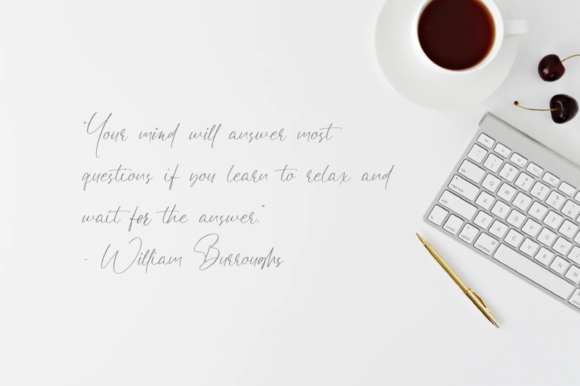 "Your mind will answer most
questions if you learn to relax and
wait for the answer."
- William Burroughs